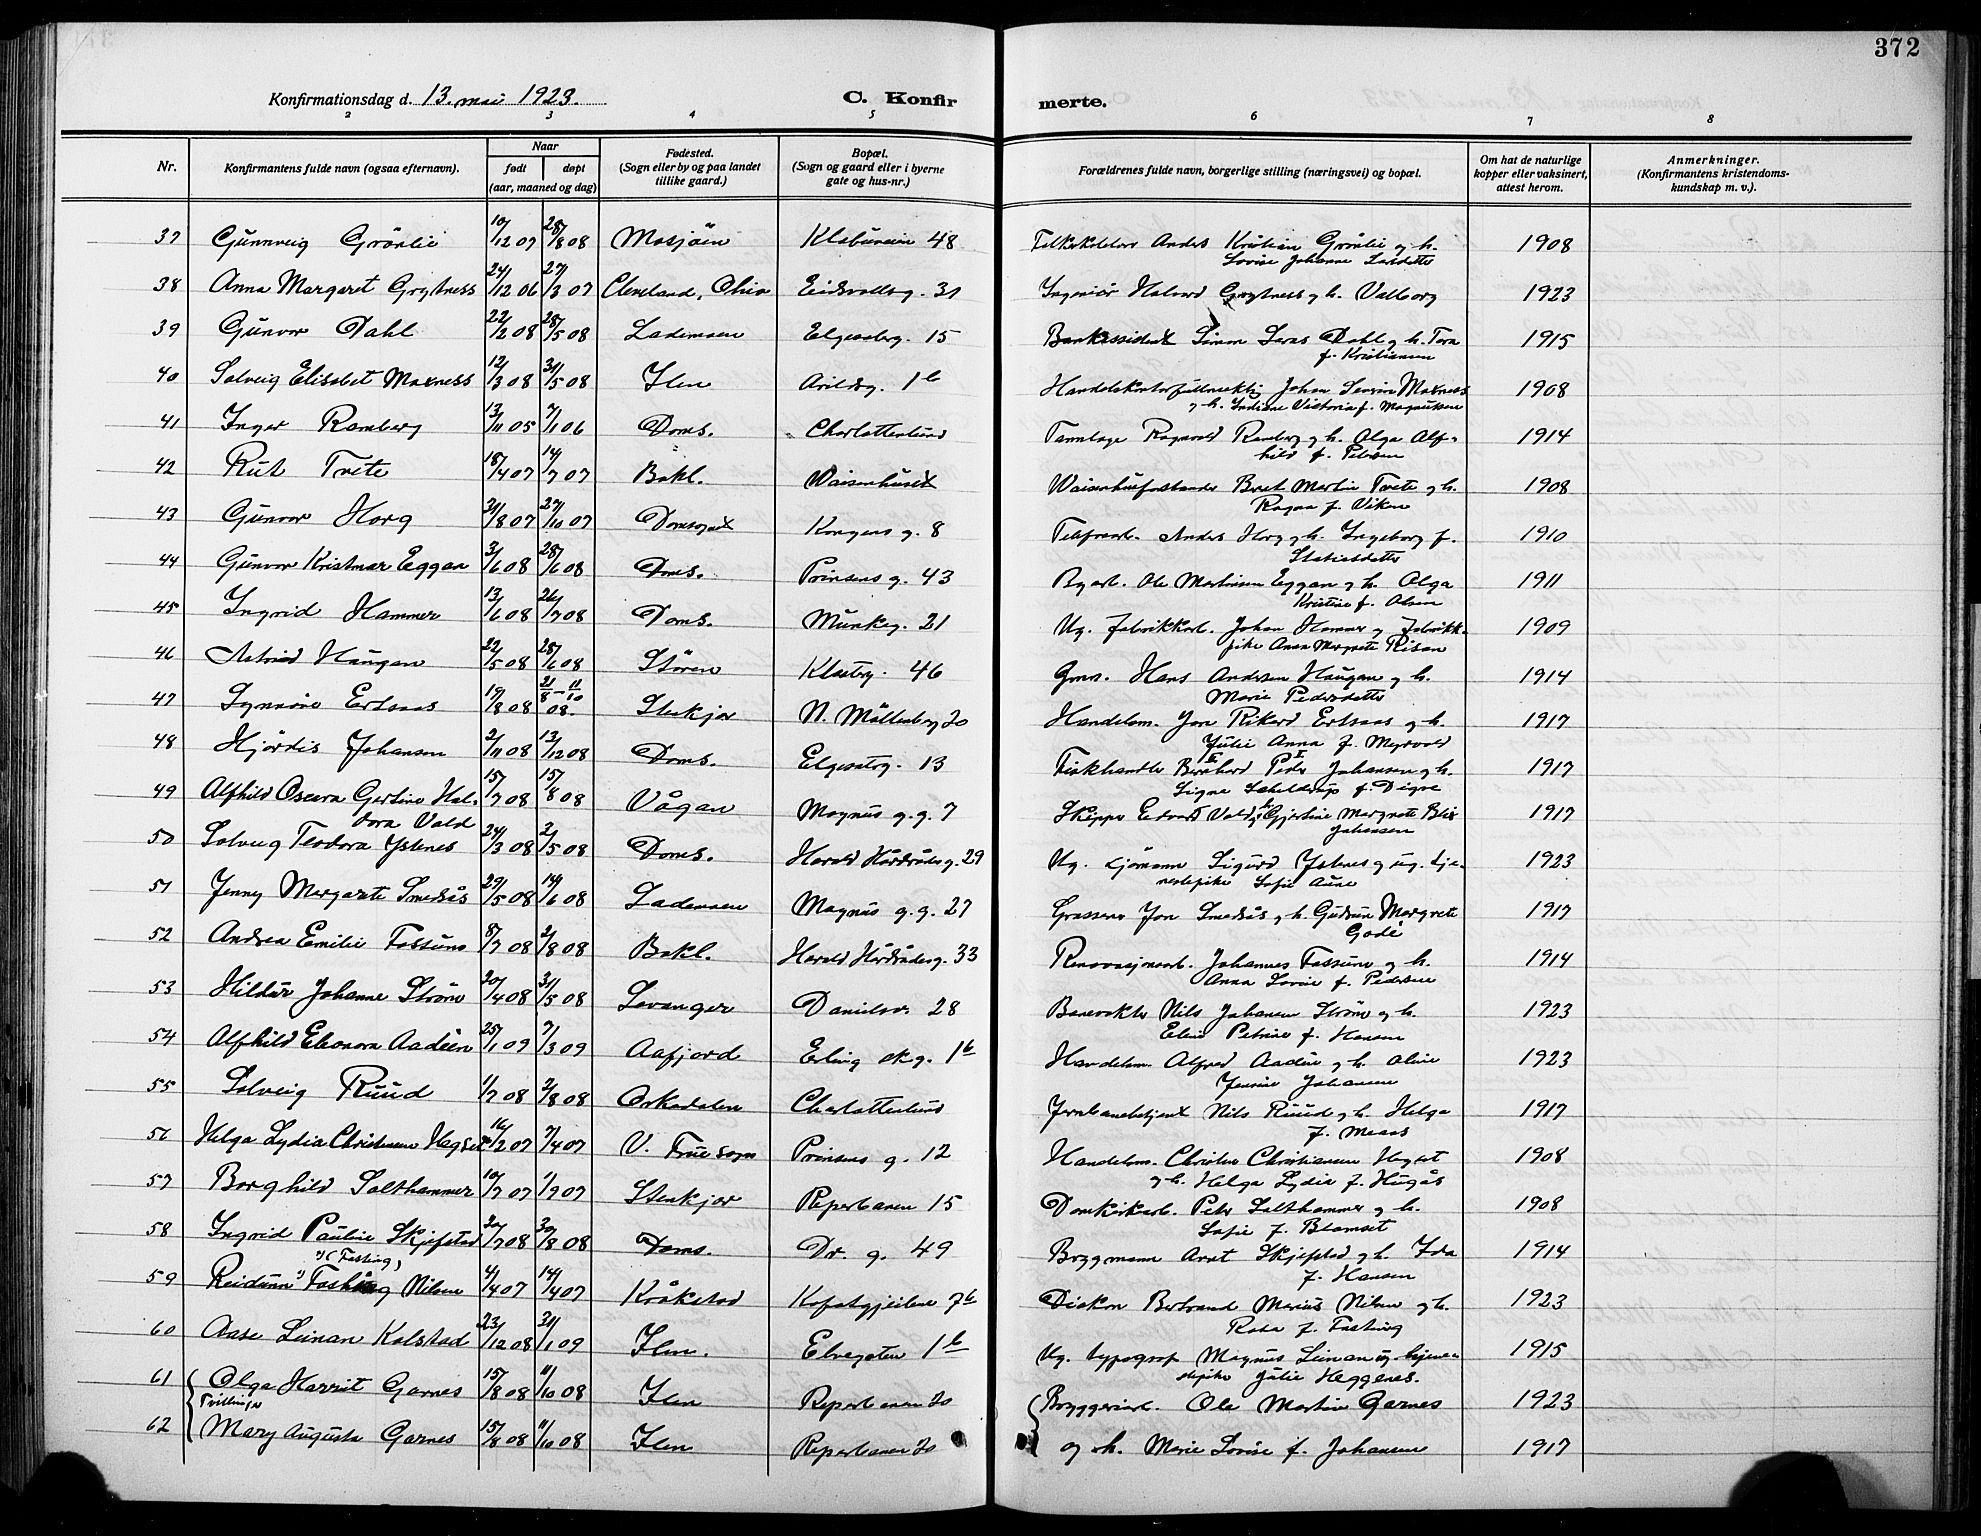 372
Konfirmationsdag d. 13. mai 1923.
C. Konfirmerte.
2 3 4 5 6 7 8
Nr.
Konfirmantens fulde navn (ogsaa efternavn).
Naar
født døpt
(aar, maaned og dag)
Fødested.
(Sogn eller by og paa landet
tillike gaard.)
Bopæl.
(Sogn og gaard eller i byerne
gate og hus-nr.)
Forældrenes fulde navn, borgerlige stilling (næringsvei) og bopæl.
Om hat de naturlige
kopper eller vaksinert,
attest herom.
Anmerkninger.
(Konfirmantens kristendoms-
kundskap m. v.).
37 Gunnveig Grönlie 10/12 07 28/8 08 Mosjöen 48 Anders Kristian Grönlie og h. 1908
Lovise Johanne
38 Anna Margaret Grytness 24/12 06 27/3 07 Cleveland, Ohio Eidsvollsg. 31 Ingeniör Halvard Grytness og h. Valborg 1923
39 Gunvor Dahl 22/2 08 28/5 08 Lademoen Elgesæterg. 15 Bankassistent Simon Dahl og h. Tora 1915
f. Kristiansen
40 Solveig Elisabet Moxness 12/3 08 31/5 08 Ilen Arildsg. 1b Johan Moxness 1908
og h. Victoria f. Magnussen
41 Inger Ramberg 13/11 05 7/1 06 Doms. Charlottenlund Tannlæge Ragnvald Ramberg og h. Olga Alf- 1914
hild f. Petersen
42 Rut Tvete 18/4 07 14/7 07 Bakl. Waisenhuset Waisenhusforstander Martin Tvete og h. 1908
Ragna f. Viken
43 Gunvor Horg 21/8 07 27/10 07 Domsognet Kongens g. 8 Anders Horg og h. Ingeborg f. 1910
44 Gunvor Eggan 3/6 08 28/6 08 Doms. Prinsens g. 43 Byarb. Ole Eggan og h. Olga 1911
Kristine f. Olsen
45 Ingrid Hammer 13/6 08 26/7 08 Doms. Munkeg. 21 Ug. fabrikkarb. Johan Hammer og fabrikk- 1909
pike Anna Margrete Risan
46 Astrid Haugan 22/5 08 28/6 08 Stören Klosterg. 46 Hans Andersen Haugan og h. 1914
Marie Pedersdatter
47 Synnöve Ertsaas 19/8 08 21/8 – 11/10 08. Stenkjær N. Möllenberg 20 Handelsm. Jon Rikard Ertsaas og h. 1917
Julie Anna f. Myrvold
48 Hjördis Johansen 2/11 08 13/12 08 Doms. Elgesæterg. 13 Fiskhandler Bernhard Peder Johansen og h. 1917
Signe
49 Alfhild Oscara Gertine Hal- 15/7 08 15/8 08 Vågan Magnus g. g. 7 Skipper Edvard Vold og Gjertine Margrete Blix 1917
dora Vold Johansen
50 Solveig Teodora Ystenes 24/3 08 2/5 08 Doms. Harald Hårdrådes g. 29 Ug. sjömann Sigurd Ystenes og ug. tje- 1923
nestepike Sofie Aune
51 Jenny Margarete Smedsås 29/5 08 14/6 08 Lademoen Magnus g. g. 27 Jon Smedsås og h. Gudrun Margrete 1917
52 Andrea Emilie Fossum 8/7 08 2/8 08 Bakl. Harald Hårdrådes g. 33 Renovasjonsarb. Johannes Fossum og h. 1914
Anna Lovise f. Pedersen
53 Hildur Johanne Ström 20/4 08 31/5 08 Levanger Danielsv. 28 Banevokter Nils Johansen Ström og h. 1923
Petrine f. Hansen
54 Alfhild Eleonora Aadeen 25/1 09 7/3 09 Aafjord Erling Sk. g. 1b Handelsm. Alfred og h. Oline 1923
Jensine Johansen
55 Solveig Ruud 1/7 08 2/8 08 Orkedalen Charlottenlund Jernbanebetjent Nils Ruud og h. Helga 1917
f. Moaas
56 Helga Lydia Christensen Hegset 16/2 07 7/4 07 V. Frue sogn Prinsens g. 12 Handelsm. Christian Christiansen Hegset 1908
og h. Helga Lydie f. Hugås
57 Borghild Salthammer 10/7 07 1/9 07 Stenkjær Reperbanen 15 Peter Salthammer og h. 1908
Sofie f.
58 Ingrid Pauline Skjefstad 20/7 08 30/8 08 Doms. Dr. g. 49 Bryggmann Arnt Skjefstad og h. Ida 1914
f. Hansen
1) (Fasting)
59 Reidunn 1) Nilsen 4/4 07 14/4 07 Kråkstad 7b Diakon Bertrand Marius Nilsen og h. 1923
f. Fasting
60 Aase Leinan Kolstad 23/12 08 31/1 09 Ilen. Elvegaten 1b Ug. typograf Magnus Leinan og tjene- 1915
stepike Julie Heggenes.
61 Olga Harriet Garnes 15/8 08 11/10 08 Ilen Reperbanen 20 Bryggeriarb. Ole Martin Garnes 1923
Tvillinger
62 Mary Augusta Garnes 15/8 08 11/10 08 Ilen Reperbanen 20 og h. Marie Lovise f. Johansen 1917